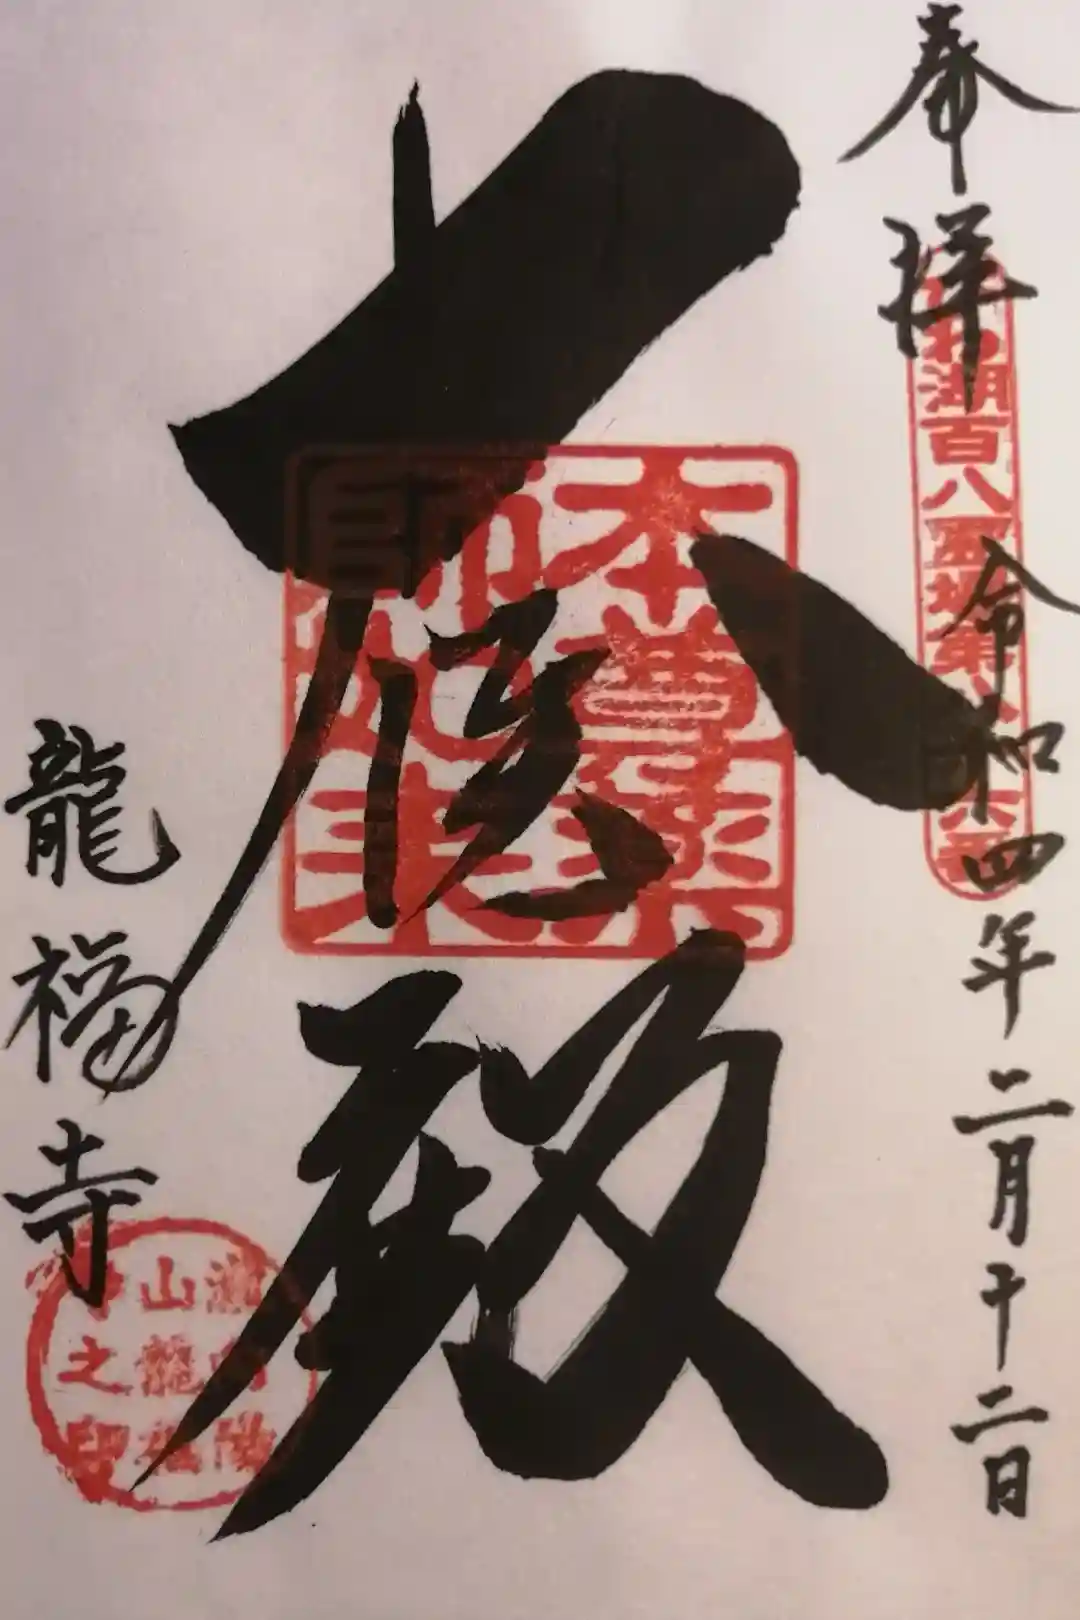 奉拝
令和四年二月十二日
わ湖百八霊場第
六番
大医殿
本尊薬
師如来
龍福寺
向陽
山龍福
寺之印